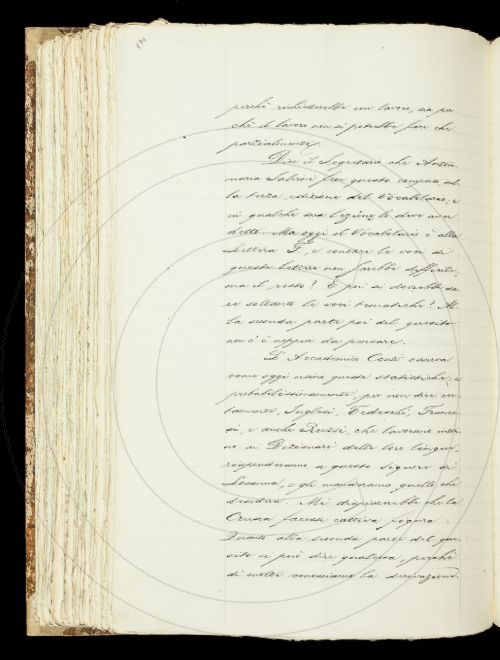 perchè richiederebbe un lavoro, sia per
chè il lavoro non si potrebbe fare che
parzialmente.
Dice il Segretario che Anton
maria Salvini fece questo computo al-
la terza edizione del Vocabolario, e
in qualche sua lezione lo dice
delle. Ma oggi il Vocabolario è alla
Lettera F., e contare le voci di
questa Lettera non sarebbe difficile,
ma il resto? E poi si dovrebbe da
re soltanto le voci tematiche? Al-
la seconda parte poi del quesito
non c'è neppur da pensare.
L'Accademico Conti osserva
come oggi usino queste statistiche; e
probabilissimamente, per non dire cer-
tamente, Inglesi, Tedeschi, France-
si, e anche Russi, che lavorano
no a Dizionari delle loro lingue,
risponderanno a questo Signore di
Losanna, e gli manderanno quello che
desidera. Mi dispiacerebbe che la
Crusca facesse cattiva figura.
Quanto alla seconda parte del que-
sito si può dire qualcosa, perchè
di molti conosciamo la derivazione.